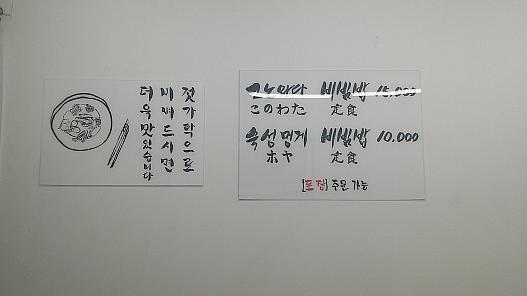 젓가락으로
비벼드시면
더욱 맛있습니다
고노와다 비빔밥 15.000
このわた 定食
숙성멍게 비빔밥 10.000
ホヤ 定食
[포장] 주문 가능